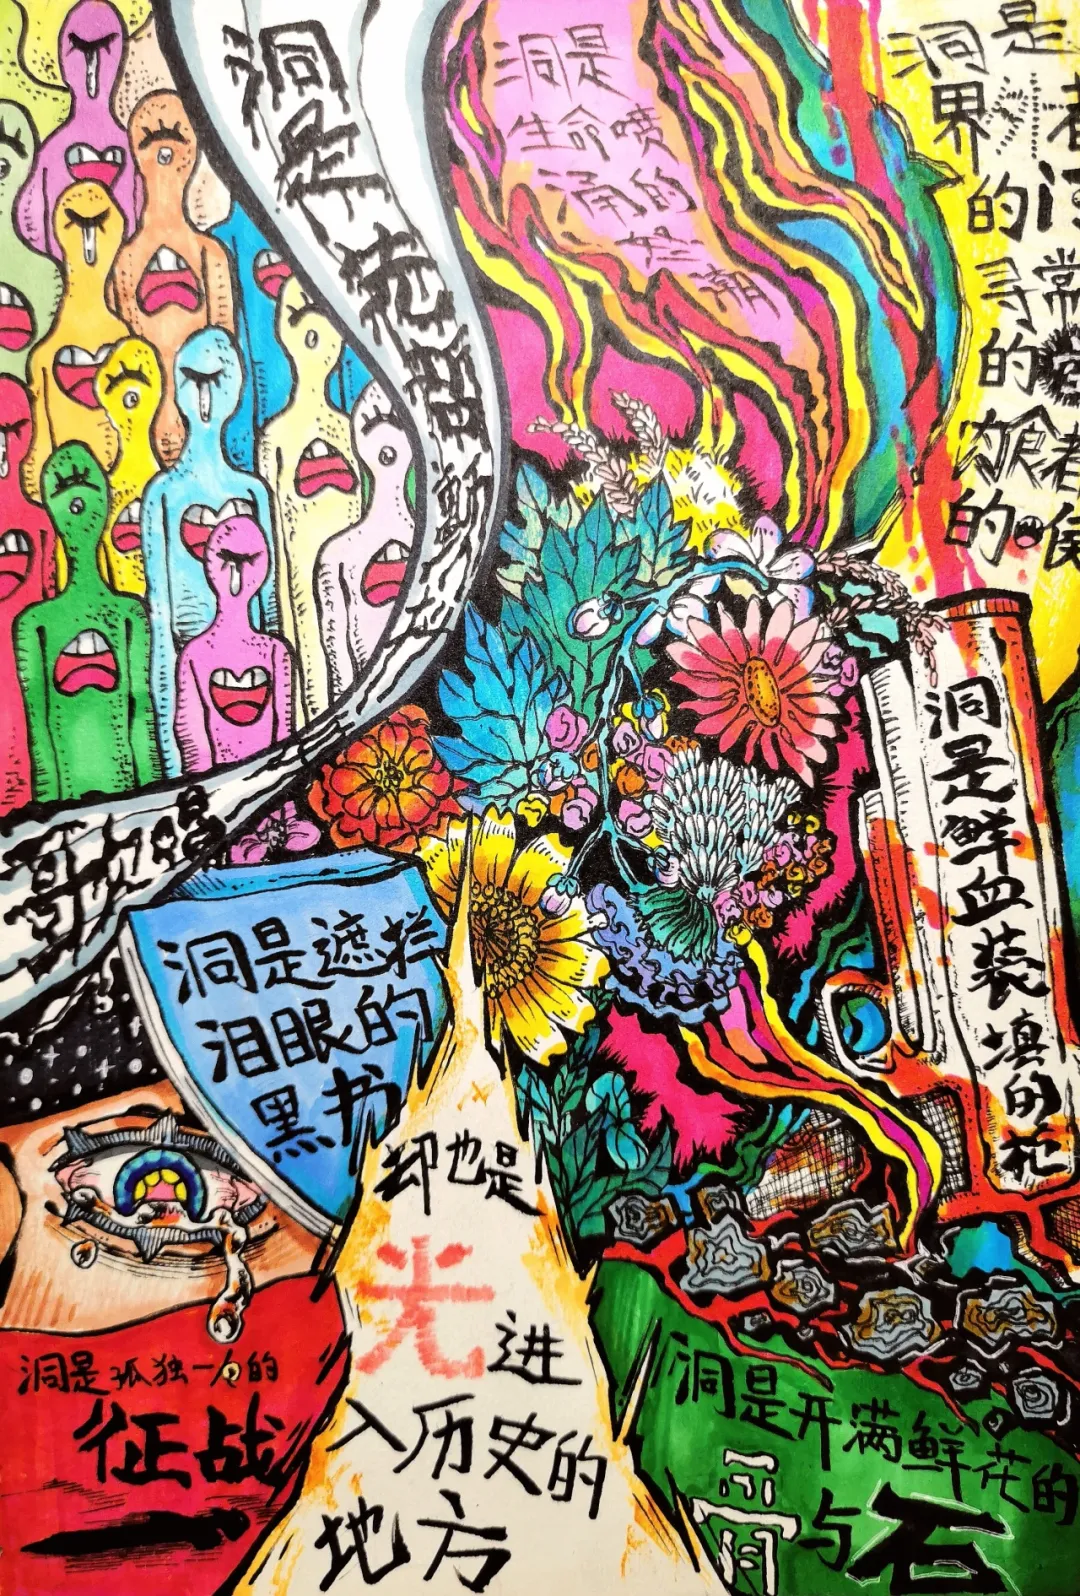 洞是
歌唱
洞是
生命喷
涌的
洞是
界
的
寻常
的
者
的
洞是鲜血装填的花
洞是遮拦
泪眼的
黑书
却也是
光进
入历史的
地方
洞是孤独一人的
征战
洞是开满鲜花的
骨与石